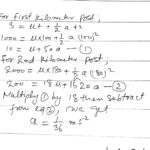 For first Kilometer Post,
S = ut + 1/2 a t²
1000 = u×100 + 1/2 a (100)²
10 = u + 50a — ①
For 2nd Kilometer Post;
2000 = u×180 + 1/2 a (180)²
200 = 18u + 1620a — ②
Multiply ① by 18 then subtract
from eq ②, we get
a = 1/36 ms⁻²